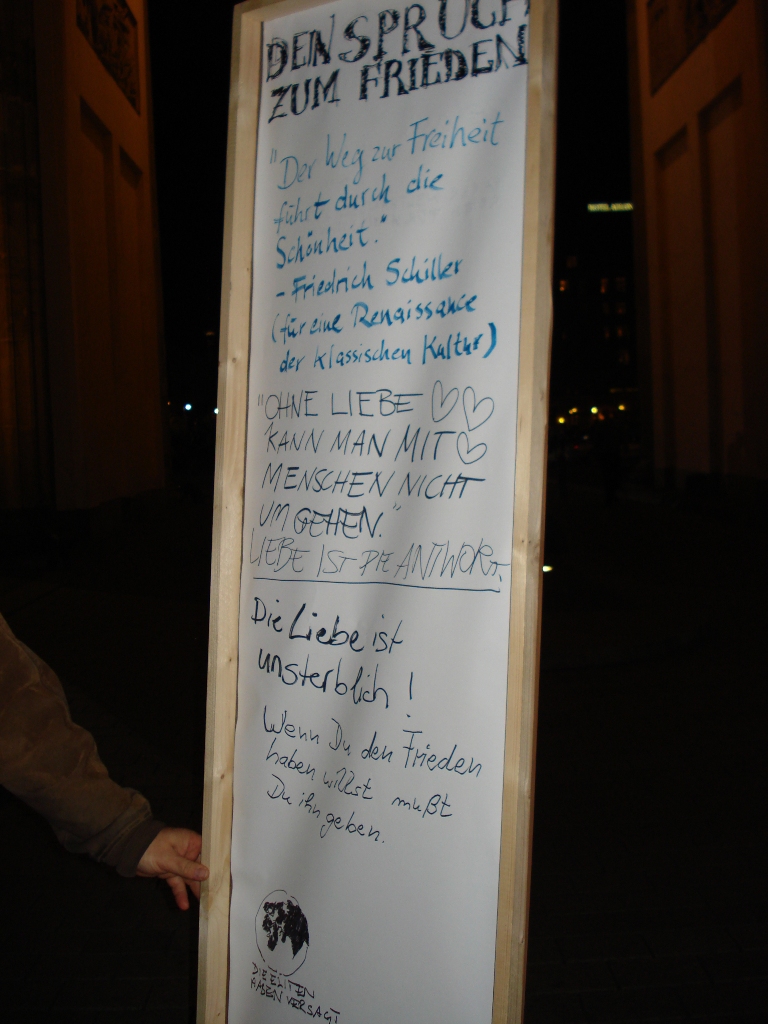 DEIN SPRUCH
ZUM FRIEDEN
"Der Weg zur Freiheit
führt durch die
Schönheit."
- Friedrich Schiller
(für eine Renaissance
der klassischen Kultur)
"OHNE LIEBE
KANN MAN MIT
MENSCHEN NICHT
UMGEHEN."
LIEBE IST DIE ANTWORT.
Die Liebe ist
unsterblich!
Wenn Du den Frieden
haben willst mußt
Du ihn geben.
DIE ELITEN
HABEN VERSAGT